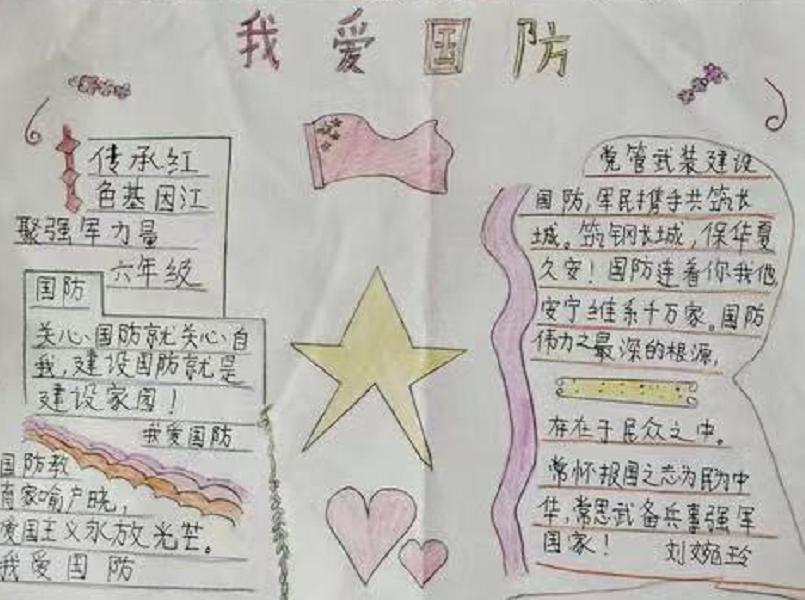 我爱国防
传承红
色基因江
聚强军力量
六年级
国防
关心国防就关心自
我,建设国防就是
建设家园!
我爱国防
国防教
育家喻户晓,
爱国主义永放光芒。
我爱国防
党管武装建设
国防,军民携手共筑长
城。筑钢长城,保华夏
久安!国防连着你我他,
安宁维系千万家。国防
伟力之最深的根源,
存在于民众之中。
常怀报国之志为民为中
华,常思武备兵事强军
国家!
刘婉玲